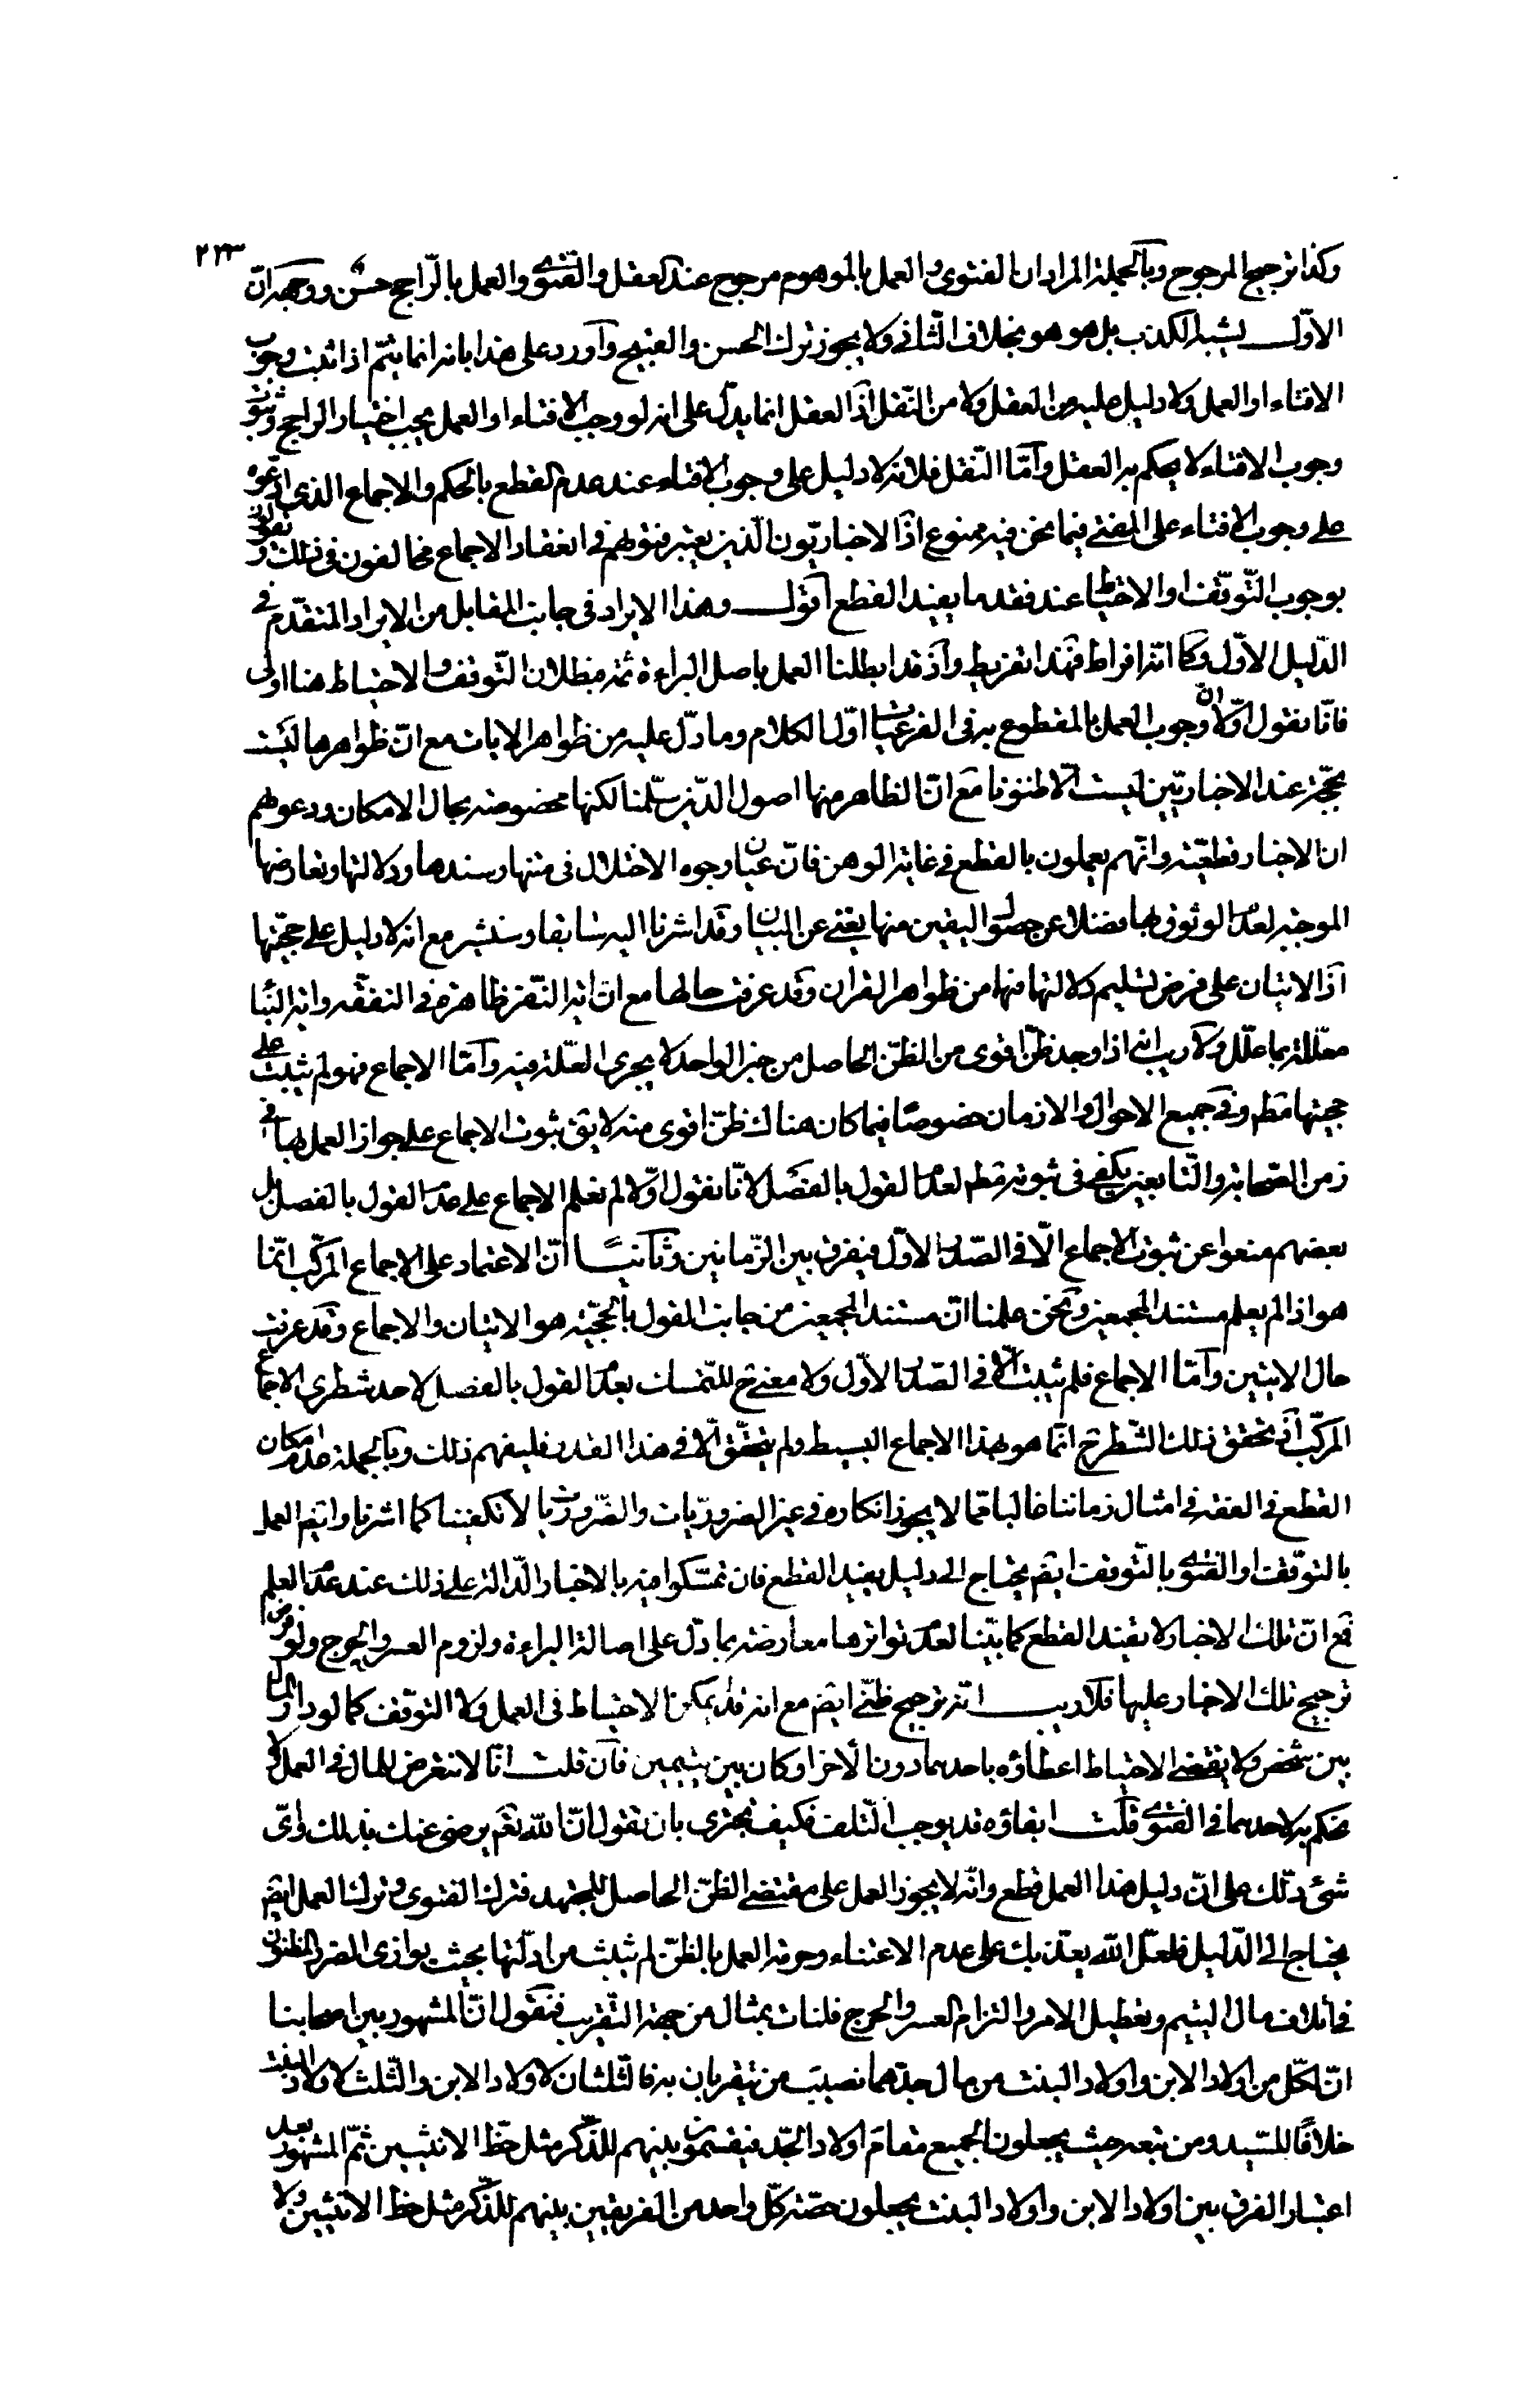 ٢٣٣
وكذا ترجيح المرجوح وبالجملة المراد ان الفتوى والعمل بالموهوم مرجوح عند العقل والفتوى والعمل بالراجح حسن ووجهه انّ
الاوّل يشبه الكذب بل هو هو بخلاف الثّانى ولا يجوز ترك الحسن والقبيح واورد على هذا بانه انما يتمّ اذا ثبت وجوب
الافتاء او العمل ولا دليل عليه من العقل ولا من النّقل اذ العقل انما يدلّ على انه لو وجب الافتاء او العمل يجب اختيار الراجح وثبوت
وجوب الافتاء لا يحكم به العقل وامّا النّقل فلانه لا دليل على وجوب الافتاء عند عدم القطع بالحكم والاجماع الذى ادّعوه
على وجوب الافتاء على المفتى فيما نحن فيه ممنوع اذ الاخباريّون الّذين يعتبر فتوٰهم فى انعقاد الاجماع مخالفون فى ذلك ويقولون
بوجوب التّوقّف او الاحتياط عند فقد ما يفيد القطع اقول وهذا الايراد فى جانب المقابل من الايراد المتقدّم فى
الدّليل الاوّل فكما انّه افراط فهذا تفريط واذ قد ابطلنا العمل باصل البراءة ثمّه فبطلان التّوقف والاحتياط هنا اولى
فانّا نقول اوّلا انّ وجوب العمل بالمقطوع به فى الفرعيّات اوّل الكلام وما دلّ عليه من ظواهر الايات مع انّ ظواهرها ليست
بحجّة عند الاخباريّين ليست الّا ظنونا مع انّ الظاهر منها اصول الدّين سلّمنا لكنها مخصوصة بحال الامكان ودعوٰهم
ان الاخبار قطعيّة وانّهم يعملون بالقطع فى غاية الوهن فانّ عيان وجوه الاختلال فى متنها وسندها ودلالتها وتعارضها
الموجبة لعدم الوثوق بها فضلا عن حصول اليقين منها يغنى عن البيان وقد اشرنا اليه سابقا وسنشير مع انه لا دليل على حجّيتها
اذ الايتان على فرض تسليم دلالتهما فهما من ظواهر القران وقد عرفت حالها مع ان اية النّفر ظاهرة فى التفقّه واية النّبا
معلّلة بما علّل ولا ريب انه اذا وجد ظنّ اقوى من الظنّ الحاصل من خبر الواحد لا يجرى العلّة فيه وامّا الاجماع فهو لم يثبت على
حجيتها مطم وفى جميع الاحوال والازمان خصوصًا فيما كان هناك ظنّ اقوى منه لا يق ثبوت الاجماع على جواز العمل بها فى
زمن الصّحابة والتّابعين يكفى فى ثبوته مطم لعدم القول بالفصل لانّا نقول اوّلا لم نعلم الاجماع على عدم القول بالفصل بل
بعضهم منعوا عن ثبوت الاجماع الّا فى الصّدر الاوّل فيفرق بين الزّمانين وثانيًا انّ الاعتماد على الاجماع المركّب انّما
هو اذا لم يعلم مستند المجمعين ونحن علمنا انّ مستند المجمعين من جانب القول بالحجّية هو الايتان والاجماع وقد عرفت
حال الايتين وامّا الاجماع فلم يثبت الّا فى الصّدر الاوّل ولا معنى ح للتمسّك بعدم القول بالفصل لاحد شطرى الاجماع
المركّب اذ تحقق ذلك الشّطر ح انّما هو بهذا الاجماع البسيط ولم يتحقّق الّا فى هذا القدر فليفهم ذلك وبالجملة عدم امكان
القطع فى الفقه فى امثال زماننا غالبا ممّا لا يجوز انكاره فى غير الضروريّات والضّروريّات لا تكفينا كما اشرنا وايضم العمل
بالتوقّف او الفتوى بالتّوقف ايضم يحتاج الى دليل يفيد القطع فان تمسّكوا فيه بالاخبار الدّالة على ذلك عند عدم العلم
فمع انّ تلك الاخبار لا تفيد القطع كما بيّنا لعدم تواترها معارضة بما دلّ على اصالة البراءة ولزوم العسر والحرج ولو فرض
ترجيح تلك الاخبار عليها فلا ريب انّه ترجيح ظنّى ايضم مع انه قد لا يمكن الاحتياط فى العمل ولا التوقّف كما لو دار المال
بين شخص ولا يقتضى الاحتياط اعطاؤه باحدهما دون الاخر او كان بين يتيمين فان قلت انّا لا نتعرض للمال فى العمل ولا
نحكم به لاحدهما فى الفتوى قلت ابقاؤه قد يوجب التّلف فكيف تجترى بان تقول انّ الله تعم يرضى عنك بذلك واىّ
شئ دلّك على انّ دليل هذا العمل قطع وانّه لا يجوز العمل على مقتضى الظنّ الحاصل للمجتهد فترك الفتوى وترك العمل ايضم
يحتاج الى الدّليل فلعلّ الله يعذّبك على عدم الاعتناء وحرمة العمل بالظنّ لم يثبت من ادلّتها بحيث يوازى الضرر المظنون
فى اتلاف مال اليتيم وتعطيل الامر والتزام العسر والحرج فلنات بمثال من جهة التّقريب فنقول انّ المشهور بين اصحابنا
انّ لكلّ من اولاد الابن واولاد البنت من مال جدّهما نصيب من يتقربان به فالثّلثان لاولاد الابن والثّلث لاولاد البنت
خلافًا للسّيد ومن تبعه حيث يجعلون الجميع مقام اولاد الجدّ فيقسمون بينهم للذّكر مثل حظّ الانثيين ثمّ المشهور بعد
اعتبار الفرق بين اولاد الابن واولاد البنت يجعلون حصّة كلّ واحد من الفريقين بينهم للذّكر مثل حظّ الانثيين ولا